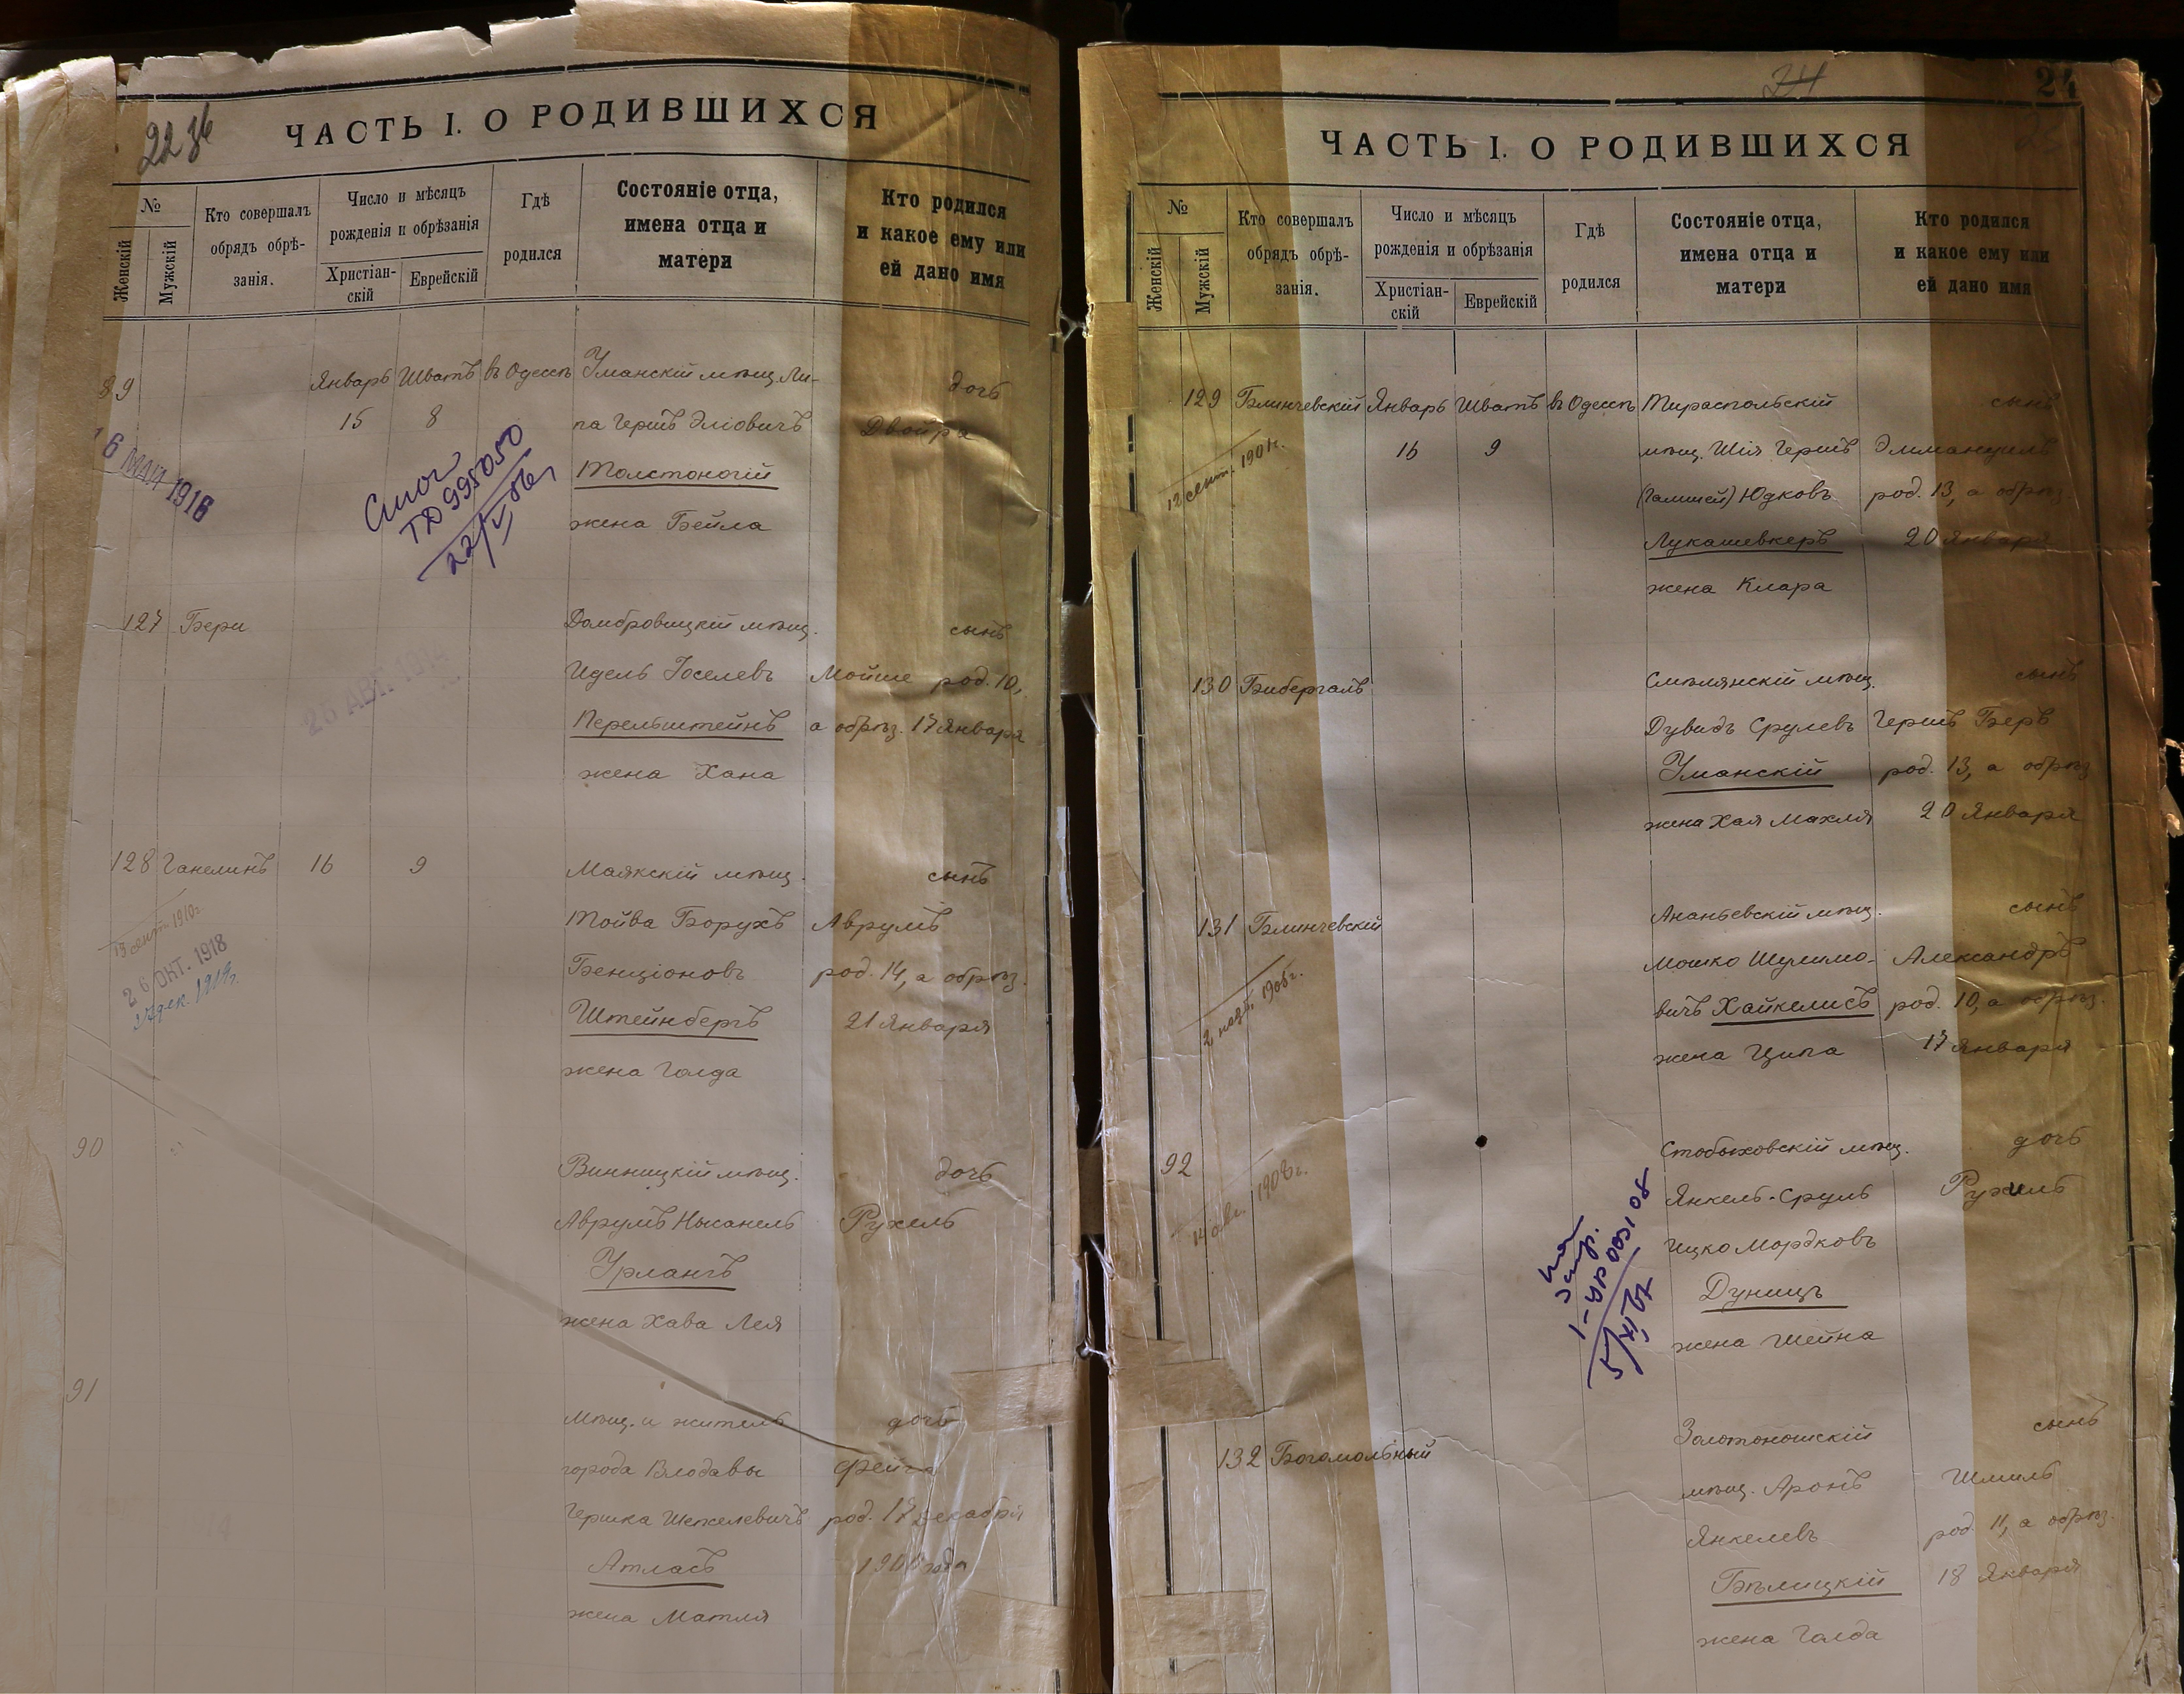 22 зв
ЧАСТЬ I. О РОДИВШИХСЯ
№
Женскій
Мужскій
Кто совершалъ
обрядъ обрѣ-
занія.
Число и мѣсяцъ
рожденія и обрѣзанія
Христіан-
скій
Еврейскій
Гдѣ
родился
Состояніе отца,
имена отца и
матери
Кто родился
и какое ему или
ей дано имя
89 Январь Шватъ въ Одессѣ Уманскій мѣщ. Ли- дочь
15 8 па Гершъ Эліовичъ Двойра
Толстоногій
жена Бейла
16 МАЯ 1916
ТД 995050
127 Бери Домбровицкій мѣщ. сынъ
Идель Іоселевъ Мойше род. 10,
Перельштейнъ а обрѣз. 17 Января
жена Хана
128 Ганелинъ 16 9 Маякскій мѣщ. сынъ
Тойва Борухъ Аврумъ
Бенціоновъ род. 14, а обрѣз.
Штейнбергъ 21 Января
жена Голда
13 сент. 1910 г.
26 ОКТ. 1918
90 Винницкій мѣщ. дочь
Аврумъ Нысанель Рухель
Урлангъ
жена Хава Лея
91 мѣщ. и житель дочь
города Влодавы Фейга
Гершка Шекелевичъ род. 17 декабря
Атласъ 1900 года
жена Матля
24
24
ЧАСТЬ I. О РОДИВШИХСЯ
№
Женскій
Мужскій
Кто совершалъ
обрядъ обрѣ-
занія.
Число и мѣсяцъ
рожденія и обрѣзанія
Христіан-
скій
Еврейскій
Гдѣ
родился
Состояніе отца,
имена отца и
матери
Кто родился
и какое ему или
ей дано имя
129 Блинчевскій Январь Шватъ въ Одессѣ Тираспольскій сынъ
16 9 мѣщ. Шія Гершъ Эммануилъ
Юдковъ род. 13, а обрѣз.
Лукашевкеръ 20 Января
жена Клара
130 Бибергалъ Смѣлянскій мѣщ. сынъ
Дувидъ Срулевъ Гершъ Беръ
Уманскій род. 13, а обрѣз
жена Хая Махля 20 Января
131 Блинчевскій Ананьевскій мѣщ. сынъ
Мошко Шулимо- Александръ
вичъ Хайкелисъ род. 10, а обрѣз.
жена Ципа 17 Января
92 Стобыховскій мѣщ. дочь
14 авг. 1908 г. Янкель-Сруль Рухель
Ицко Мордковъ
Дуницъ
жена Шейна
132 Богомольный Золотоношскій сынъ
мѣщ. Аронъ Шмиль
Янкелевъ род. 11, а обрѣз.
Бѣлицкій 18 Января
жена Голда